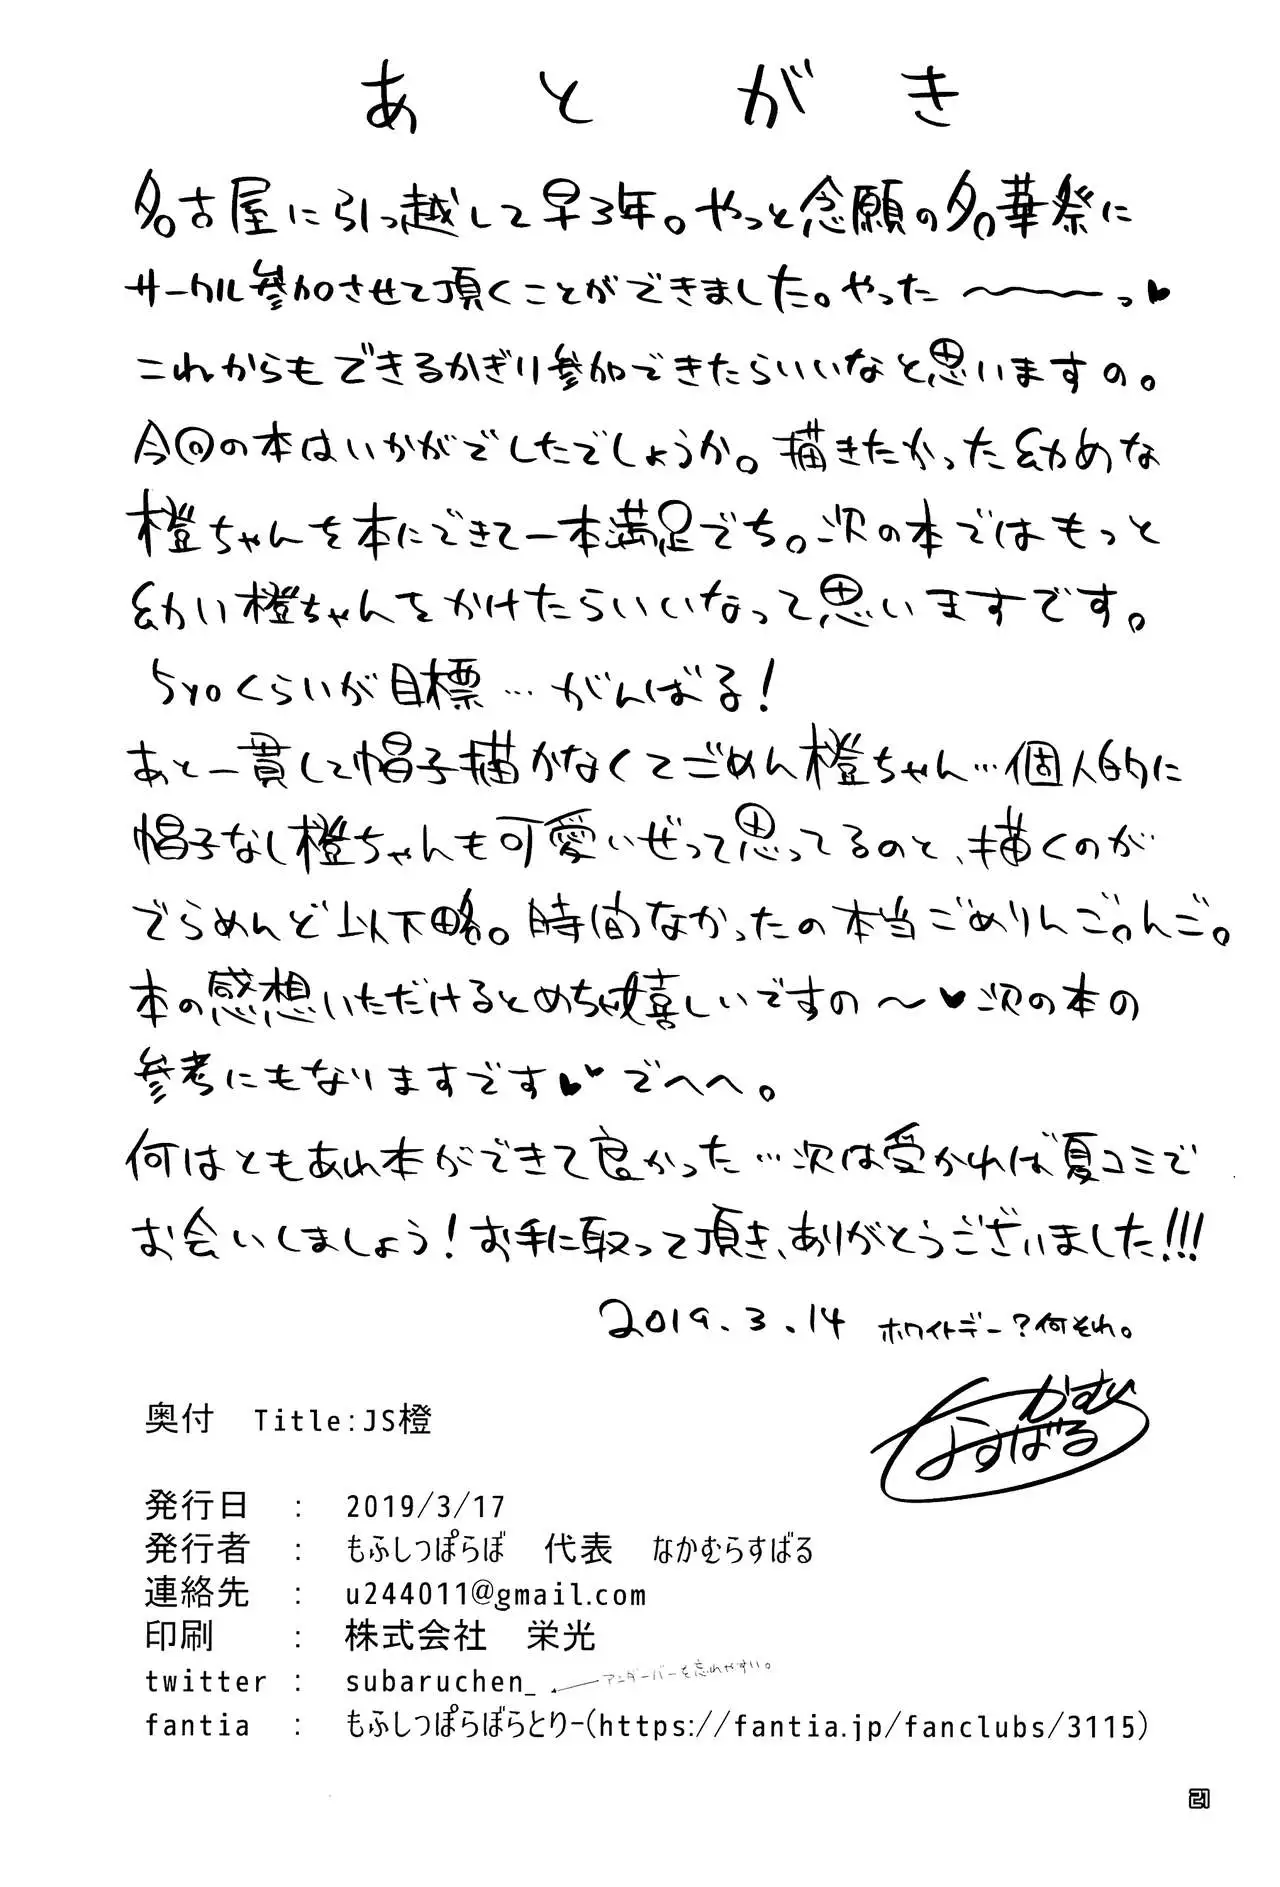 あとがき
名古屋に引っ越して早3年。やっと念願の名華祭に
サークル参加させて頂くことができました。やった〜〜〜っ♥
これからもできるかぎり参加できたらいいなと思いますの。
今回の本はいかがでしたでしょうか。描きたかった幼めな
橙ちゃんを本にできて一本満足でち。次の本ではもっと
幼い橙ちゃんをかけたらいいなって思いますです。
5yoくらいが目標…がんばる!
あと一貫して帽子描かなくてごめん橙ちゃん…個人的に
帽子なし橙ちゃんも可愛いぜって思ってるのと、描くのが
でらめんど以下略。時間なかったの本当ごめりんご。んご。
本の感想いただけるとめちゃ嬉しいですの〜♥次の本の
参考にもなりますです♥♥でへへ。
何はともあれ本ができて良かった…次は受かれば夏コミで
お会いしましょう!お手に取って頂き、ありがとうございました!!!
2019.3.14 ホワイトデー?何それ。
なかむら
すばる
奥付 Title:JS橙
発行日 : 2019/3/17
発行者 : もふしっぽらぼ 代表 なかむらすばる
連絡先 : u244011@gmail.com
印刷 : 株式会社 栄光
twitter : subaruchen_ アンダーバーを忘れやすい。
fantia : もふしっぽらぼらとりー(https://fantia.jp/fanclubs/3115)
21